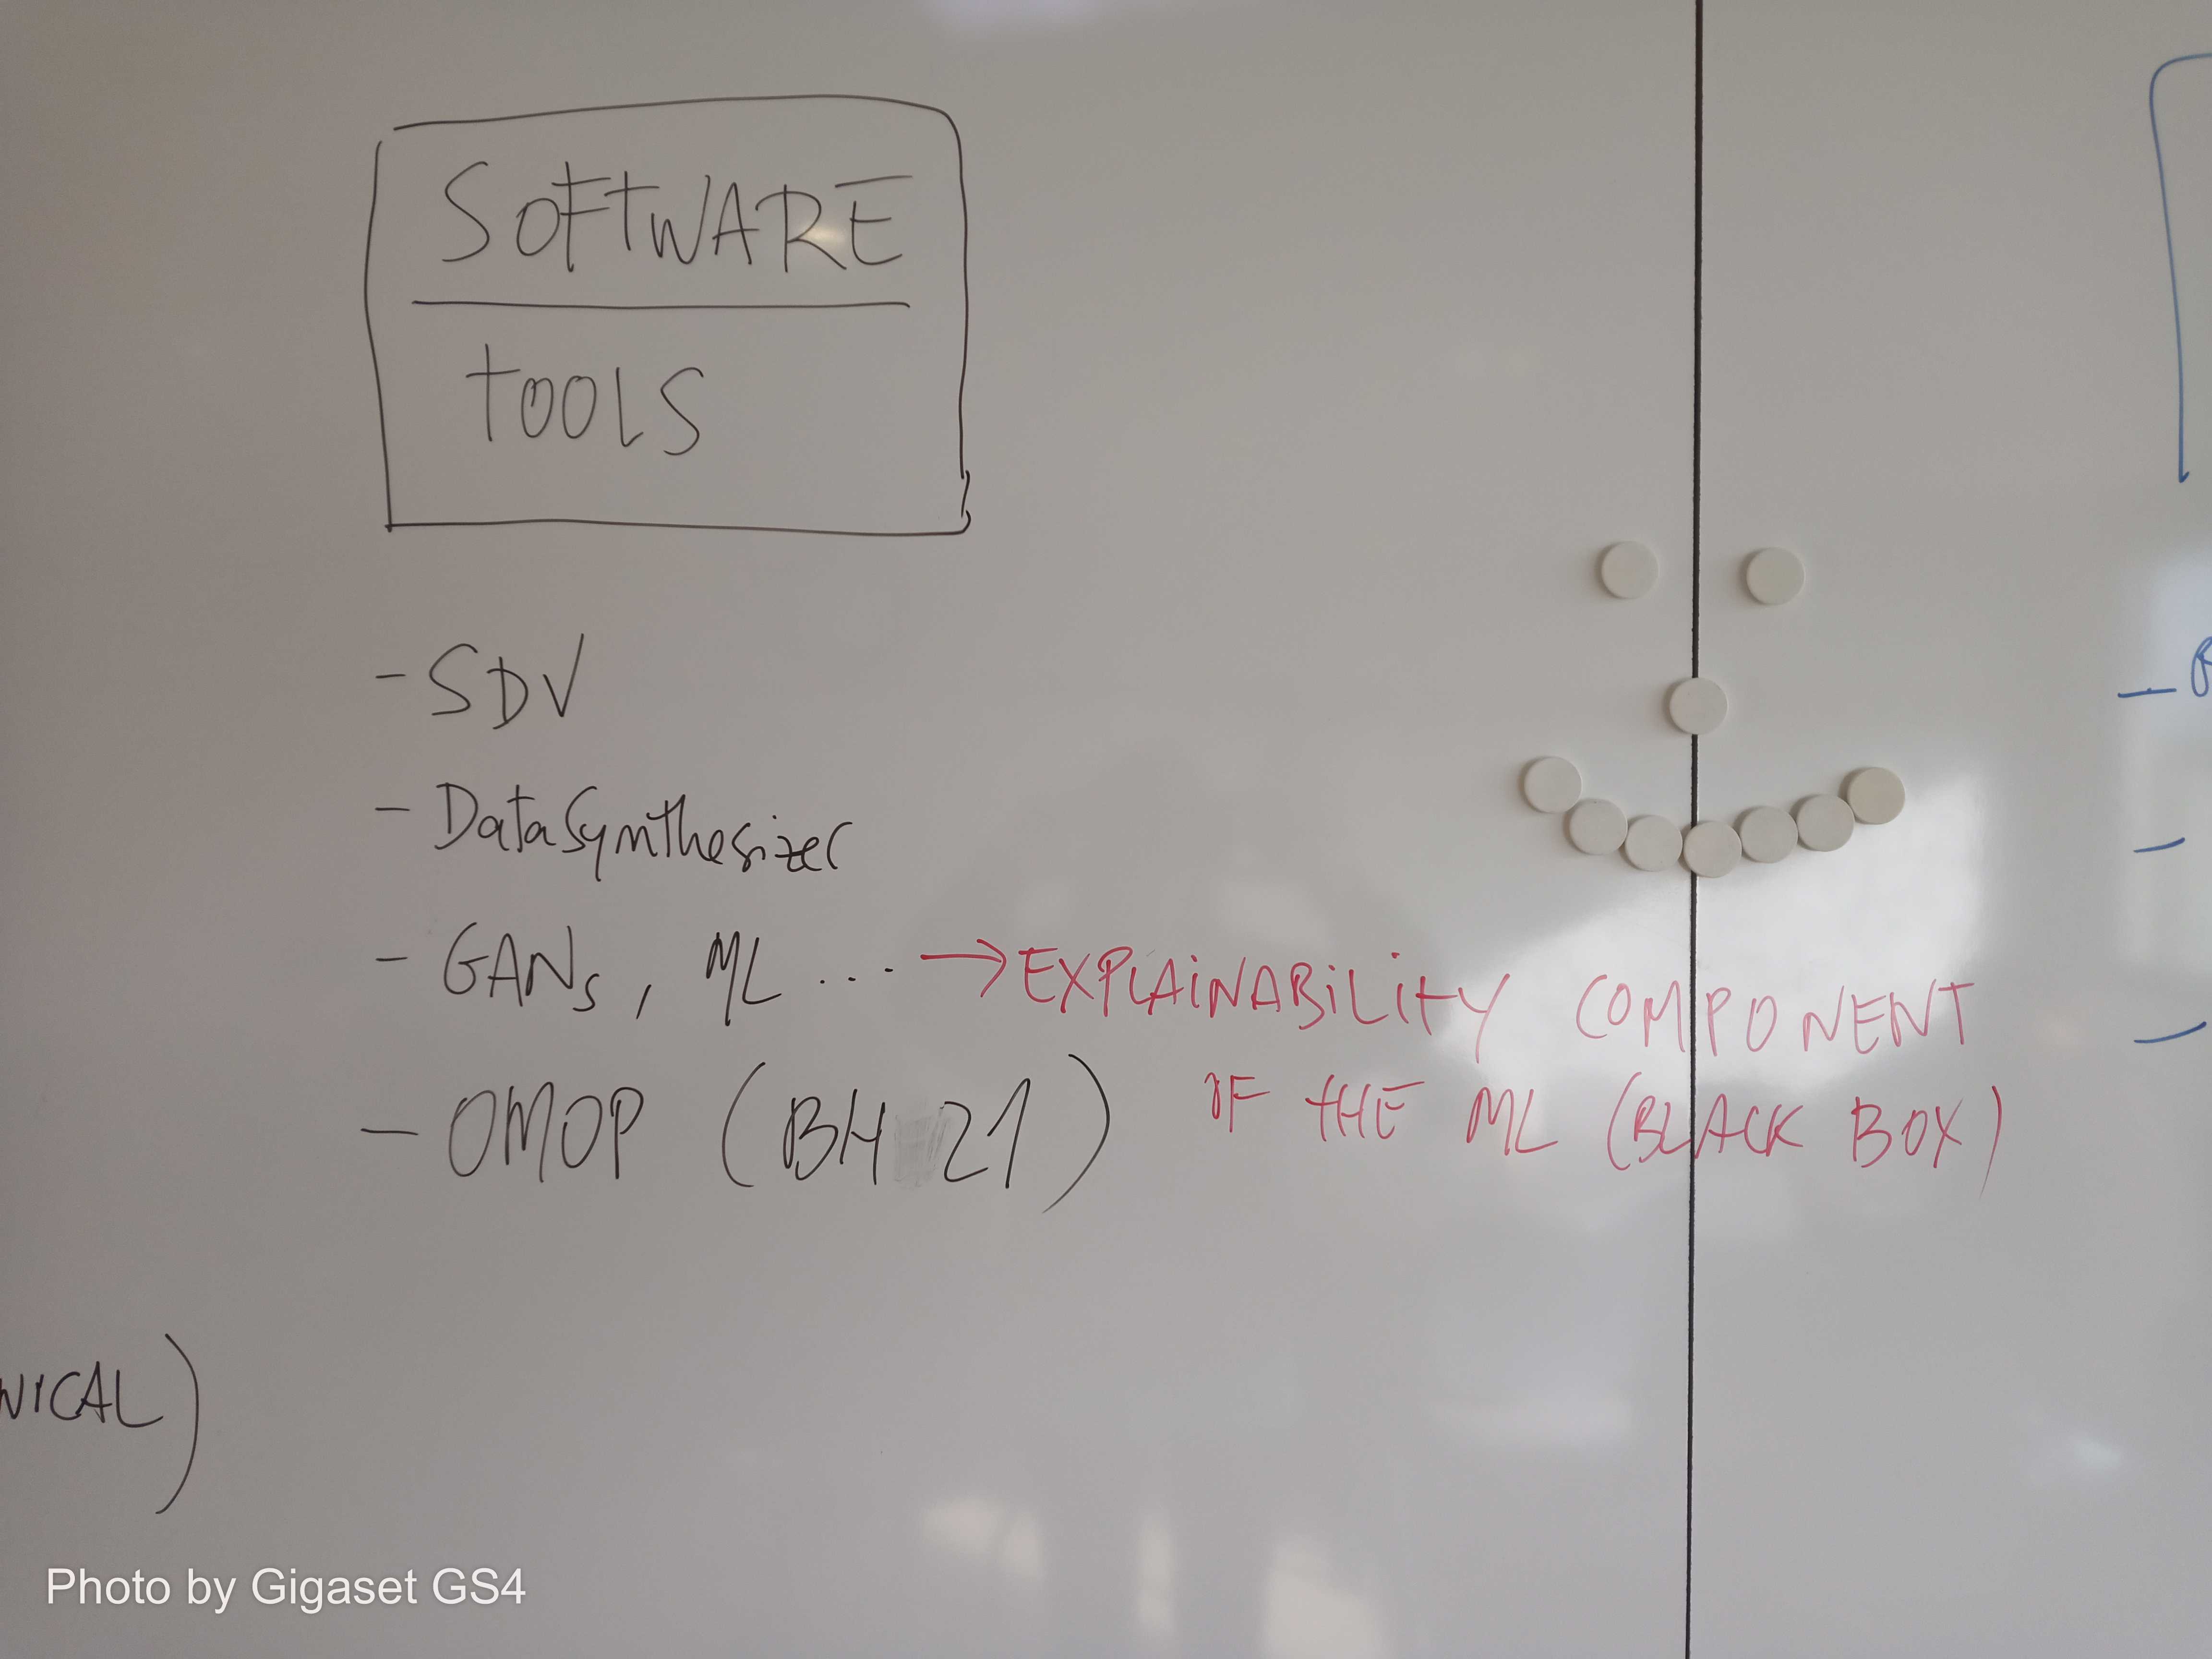 SOFTWARE
TOOLS
- SDV
- DataSynthesizer
- GANs, ML ... → EXPLAINABILITY COMPONENT
- OMOP (BH 21) IF THE ML (BLACK BOX)
NICAL)
Photo by Gigaset GS4